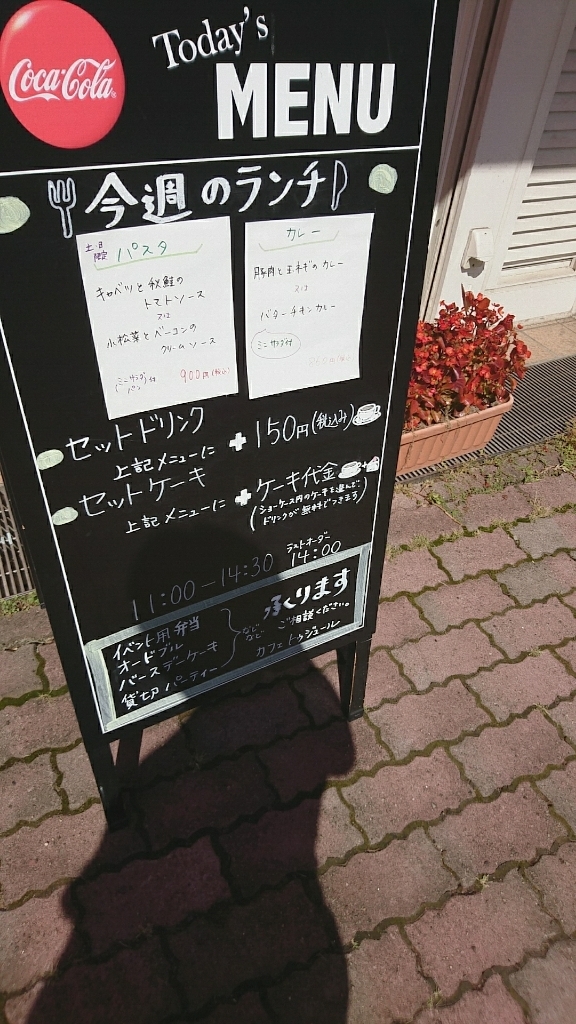 Coca-Cola
Today's
MENU
今週のランチ
土・日
限定
パスタ
キャベツと秋鮭の
トマトソース
又は
小松菜とベーコンの
クリームソース
ミニサラダ付
パン
900円(税込)
カレー
豚肉と玉ネギのカレー
又は
バターチキンカレー
ミニサラダ付
セットドリンク
上記メニューに + 150円(税込み)
セットケーキ
上記メニューに + ケーキ代金
(ショーケース内のケーキを選んで、
ドリンクが無料でつきます)
11:00-14:30
ラストオーダー
14:00
イベント用弁当
オードブル
バースデーケーキ
貸切パーティー
などなど
承ります
ご相談ください。
カフェトゥジュール